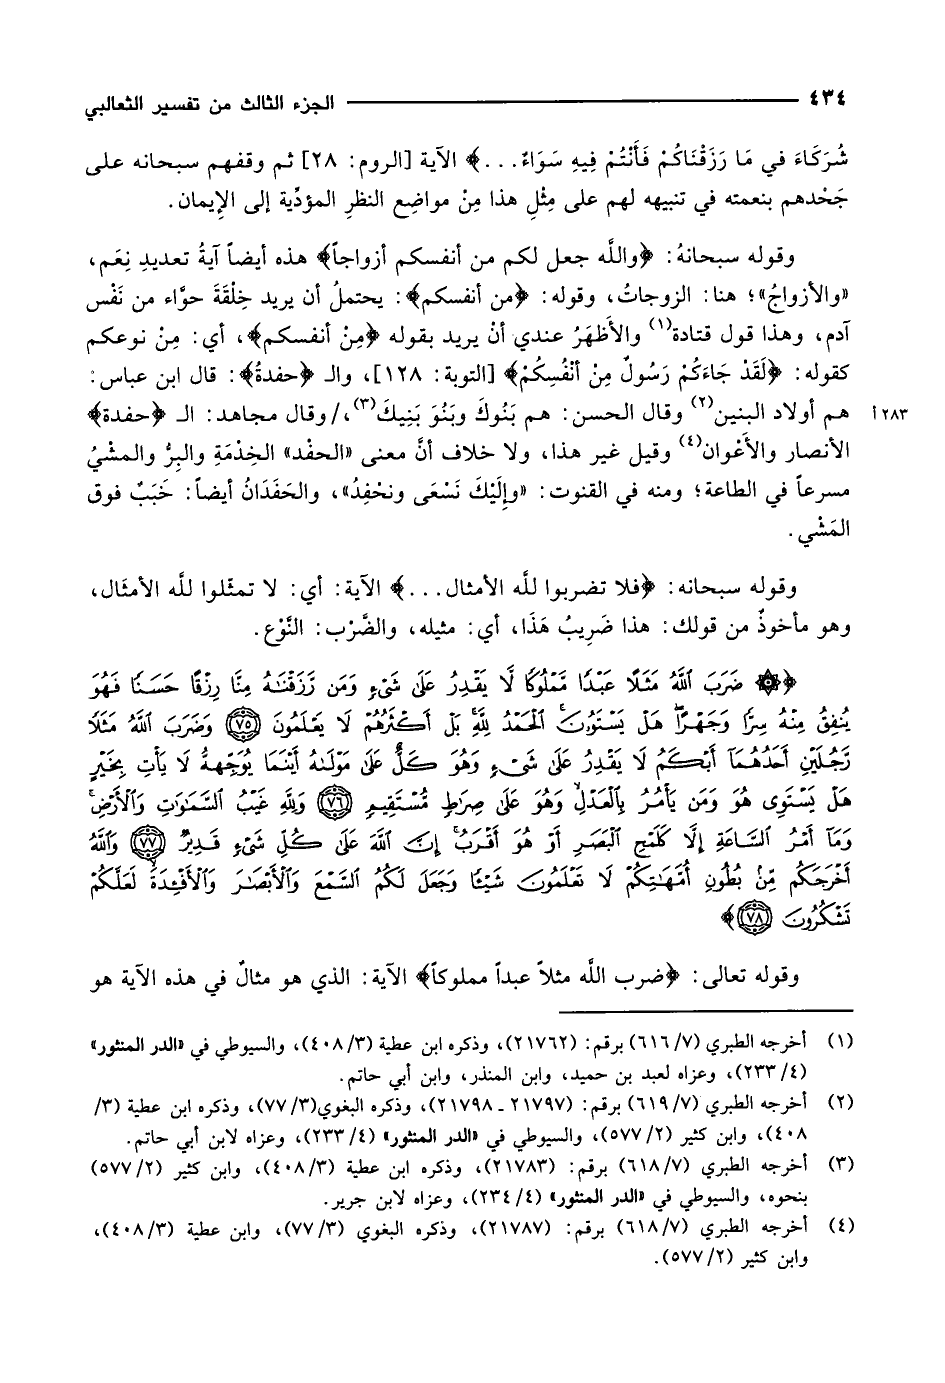 ٤٣٤ ـــــــــ الجزء الثالث من تفسير الثعالبي
شُرَكَاءَ في مَا رَزَقْنَاكُمْ فَأَنْتُمْ فِيهِ سَوَاءٌ...﴾ الآية [الروم: ٢٨] ثم وقفهم سبحانه على
جَحْدهم بنعمته في تنبيهه لهم على مِثْلِ هذا مِنْ مواضِع النظرِ المؤدِّية إلى الإِيمان.
وقوله سبحانهُ: ﴿واللَّه جعل لكم من أنفسكم أزواجاً﴾ هذه أيضاً آيةُ تعديدِ نِعَم،
«والأزواجُ»؛ هنا: الزوجاتُ، وقوله: ﴿من أنفسكم﴾: يحتملُ أن يريد خِلْقَةَ حوَّاء من نَفْس
آدم، وهذا قول قتادة(١) والأَظَهَرُ عندي أنْ يريد بقوله ﴿مِنْ أنفسكم﴾، أي: مِنْ نوعكم
كقوله: ﴿لَقَدْ جَاءَكُمْ رَسُولٌ مِنْ أنْفُسِكُمْ﴾ [التوبة: ١٢٨]، والـ ﴿حفدةُ﴾: قال ابن عباس:
هم أولاد البنين(٢) وقال الحسن: هم بَنُوكَ وبَنُوَ بَنِيكَ(٣)،/ وقال مجاهد: الـ ﴿حفدة﴾ ٢٨٣أ
الأنصار والأَعْوان(٤) وقيل غير هذا، ولا خلاف أنَّ معنى «الحفْد» الخِدْمَةِ والبِرُّ والمشيُ
مسرعاً في الطاعة؛ ومنه في القنوت: «وإِلَيْكَ نَسْعَى ونحْفِدُ»، والحَفَدَانُ أيضاً: خَبَبٌ فوق
المَشْيِ.
وقوله سبحانه: ﴿فلا تضربوا للَّه الأمثال...﴾ الآية: أي: لا تمثّلوا للَّه الأمثَال،
وهو مأخوذٌ من قولك: هذا ضَرِيبُ هَذَا، أي: مثيله، والضَّرْب: النَّوْع.
﴿۞ ضَرَبَ ٱللَّهُ مَثَلًا عَبْدًا مَّمْلُوكًا لَّا يَقْدِرُ عَلَىٰ شَىْءٍ وَمَن رَّزَقْنَٰهُ مِنَّا رِزْقًا حَسَنًا فَهُوَ
يُنفِقُ مِنْهُ سِرًّا وَجَهْرًا هَلْ يَسْتَوُۥنَ ٱلْحَمْدُ لِلَّهِ بَلْ أَكْثَرُهُمْ لَا يَعْلَمُونَ ﴿٧٥﴾ وَضَرَبَ ٱللَّهُ مَثَلًا
رَّجُلَيْنِ أَحَدُهُمَآ أَبْكَمُ لَا يَقْدِرُ عَلَىٰ شَىْءٍ وَهُوَ كَلٌّ عَلَىٰ مَوْلَىٰهُ أَيْنَمَا يُوَجِّههُّ لَا يَأْتِ بِخَيْرٍ
هَلْ يَسْتَوِى هُوَ وَمَن يَأْمُرُ بِٱلْعَدْلِ وَهُوَ عَلَىٰ صِرَٰطٍ مُّسْتَقِيمٍ ﴿٧٦﴾ وَلِلَّهِ غَيْبُ ٱلسَّمَٰوَٰتِ وَٱلْأَرْضِ
وَمَآ أَمْرُ ٱلسَّاعَةِ إِلَّا كَلَمْحِ ٱلْبَصَرِ أَوْ هُوَ أَقْرَبُ إِنَّ ٱللَّهَ عَلَىٰ كُلِّ شَىْءٍ قَدِيرٌ ﴿٧٧﴾ وَٱللَّهُ
أَخْرَجَكُم مِّنۢ بُطُونِ أُمَّهَٰتِكُمْ لَا تَعْلَمُونَ شَيْـًٔا وَجَعَلَ لَكُمُ ٱلسَّمْعَ وَٱلْأَبْصَٰرَ وَٱلْأَفْـِٔدَةَ لَعَلَّكُمْ
تَشْكُرُونَ ﴿٧٨﴾﴾
وقوله تعالى: ﴿ضرب اللَّه مثلاً عبداً مملوكاً﴾ الآية: الذي هو مثالٌ في هذه الآية هو
(١) أخرجه الطبري (٧/ ٦١٦) برقم: (٢١٧٦٢)، وذكره ابن عطية (٣/ ٤٠٨)، والسيوطي في «الدر المنثور»
(٤/ ٢٣٣)، وعزاه لعبد بن حميد، وابن المنذر، وابن أبي حاتم.
(٢) أخرجه الطبري (٧/ ٦١٩) برقم: (٢١٧٩٧ ـ ٢١٧٩٨)، وذكره البغوي(٣/ ٧٧)، وذكره ابن عطية (٣/
٤٠٨)، وابن كثير (٢/ ٥٧٧)، والسيوطي في «الدر المنثور» (٤/ ٢٣٣)، وعزاه لابن أبي حاتم.
(٣) أخرجه الطبري (٧/ ٦١٨) برقم: (٢١٧٨٣)، وذكره ابن عطية (٣/ ٤٠٨)، وابن كثير (٢/ ٥٧٧)
بنحوه، والسيوطي في «الدر المنثور» (٤/ ٢٣٤)، وعزاه لابن جرير.
(٤) أخرجه الطبري (٧/ ٦١٨) برقم: (٢١٧٨٧)، وذكره البغوي (٣/ ٧٧)، وابن عطية (٣/ ٤٠٨)،
وابن كثير (٢/ ٥٧٧).